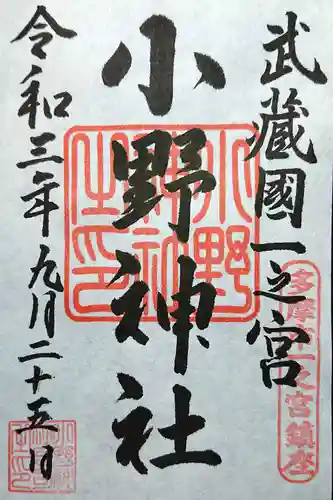 武蔵國一之宮
多摩市一之宮鎮座
小野神社
小野神社之印
令和三年九月二十五日